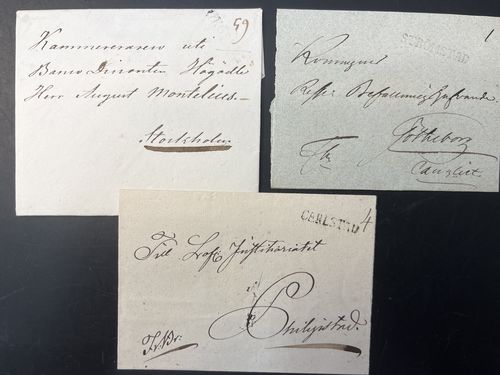 59
Kammereraren uti
Banco Disconten Högädle
Herr August Montelius
Stockholm
STRÖMSTAD
1
Konungens
Befallningshafvande
Götheborg
CARLSTAD
4
Till Lofl. Justitiariatet
Philipstad.
Fr. Br.